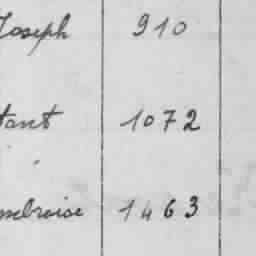 Joseph 910
tant 1072
mbroise 1463